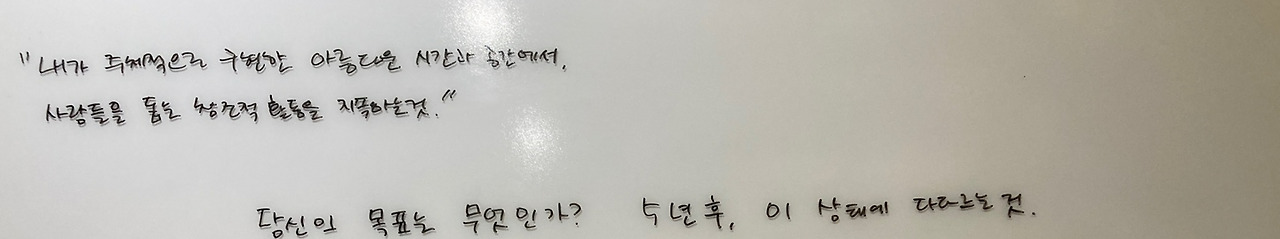 "내가 주체적으로 구현한 아름다운 시간과 공간에서,
사람들을 돕는 창조적 활동을 지속하는것."
당신의 목표는 무엇인가? 5년후, 이 상태에 다다르는것.